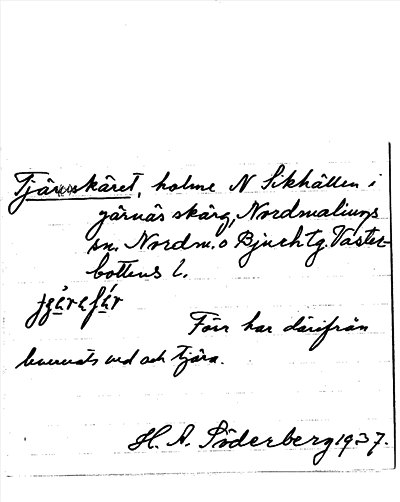 Tjäruskäret, holme N Sikhällen i
järnäs skärg, Nordmalings
sn. Nordm. o Bjurh tg. Väster-
bottens l.
Förr har därifrån
levererats ved och tjära.
H. A. Söderberg 1937.